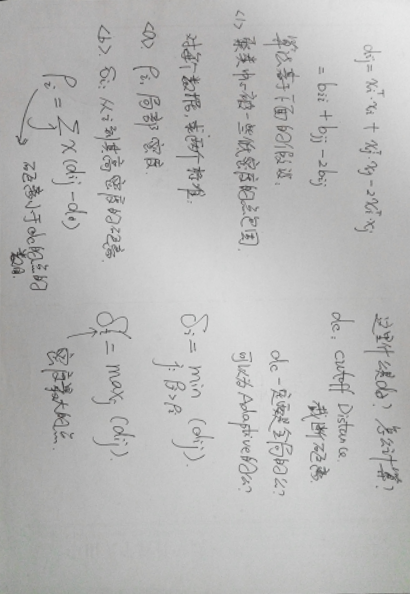 dij = xiᵀxi + xjᵀxj - 2xiᵀxj
= bii + bjj - 2bij
算法基于下面的假设:
<1> 聚类中心被一些低密度的点包围.
对每个数据, 求两个数据:
<a> ρi, 局部密度.
<b> δi, 从i到其高密度点的距离.
ρi = Σj χ(dij - dc)
→ 距离小于dc的点的数目.
这里什么是dc? 怎么计算?
dc: cutoff Distance.
截断距离
dc 一定要是全局的么?
可以为Adaptive的么?
δi = min j: ρj>ρi (dij).
δi = maxj (dij).
密度最大的点.